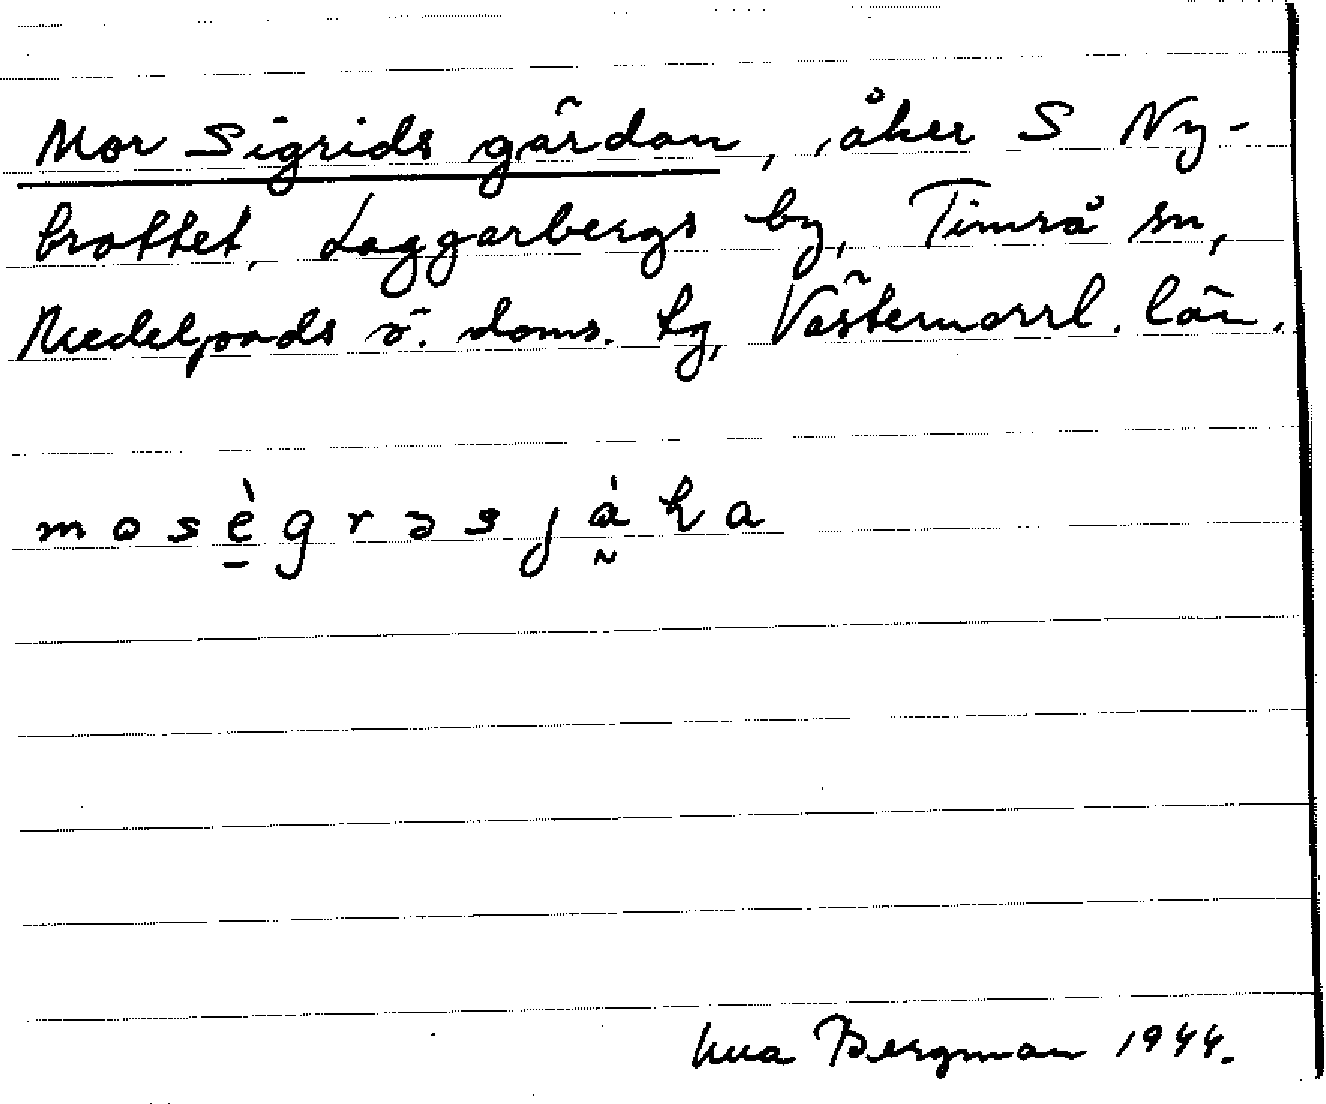 Mor Sigrids gärdan, åker S Ny-
brottet, Laggarbergs by, Timrå sn,
Medelpads ö. doms. tg, Västernorrl. län.
mosègrəsjàka
Bergman 1944.